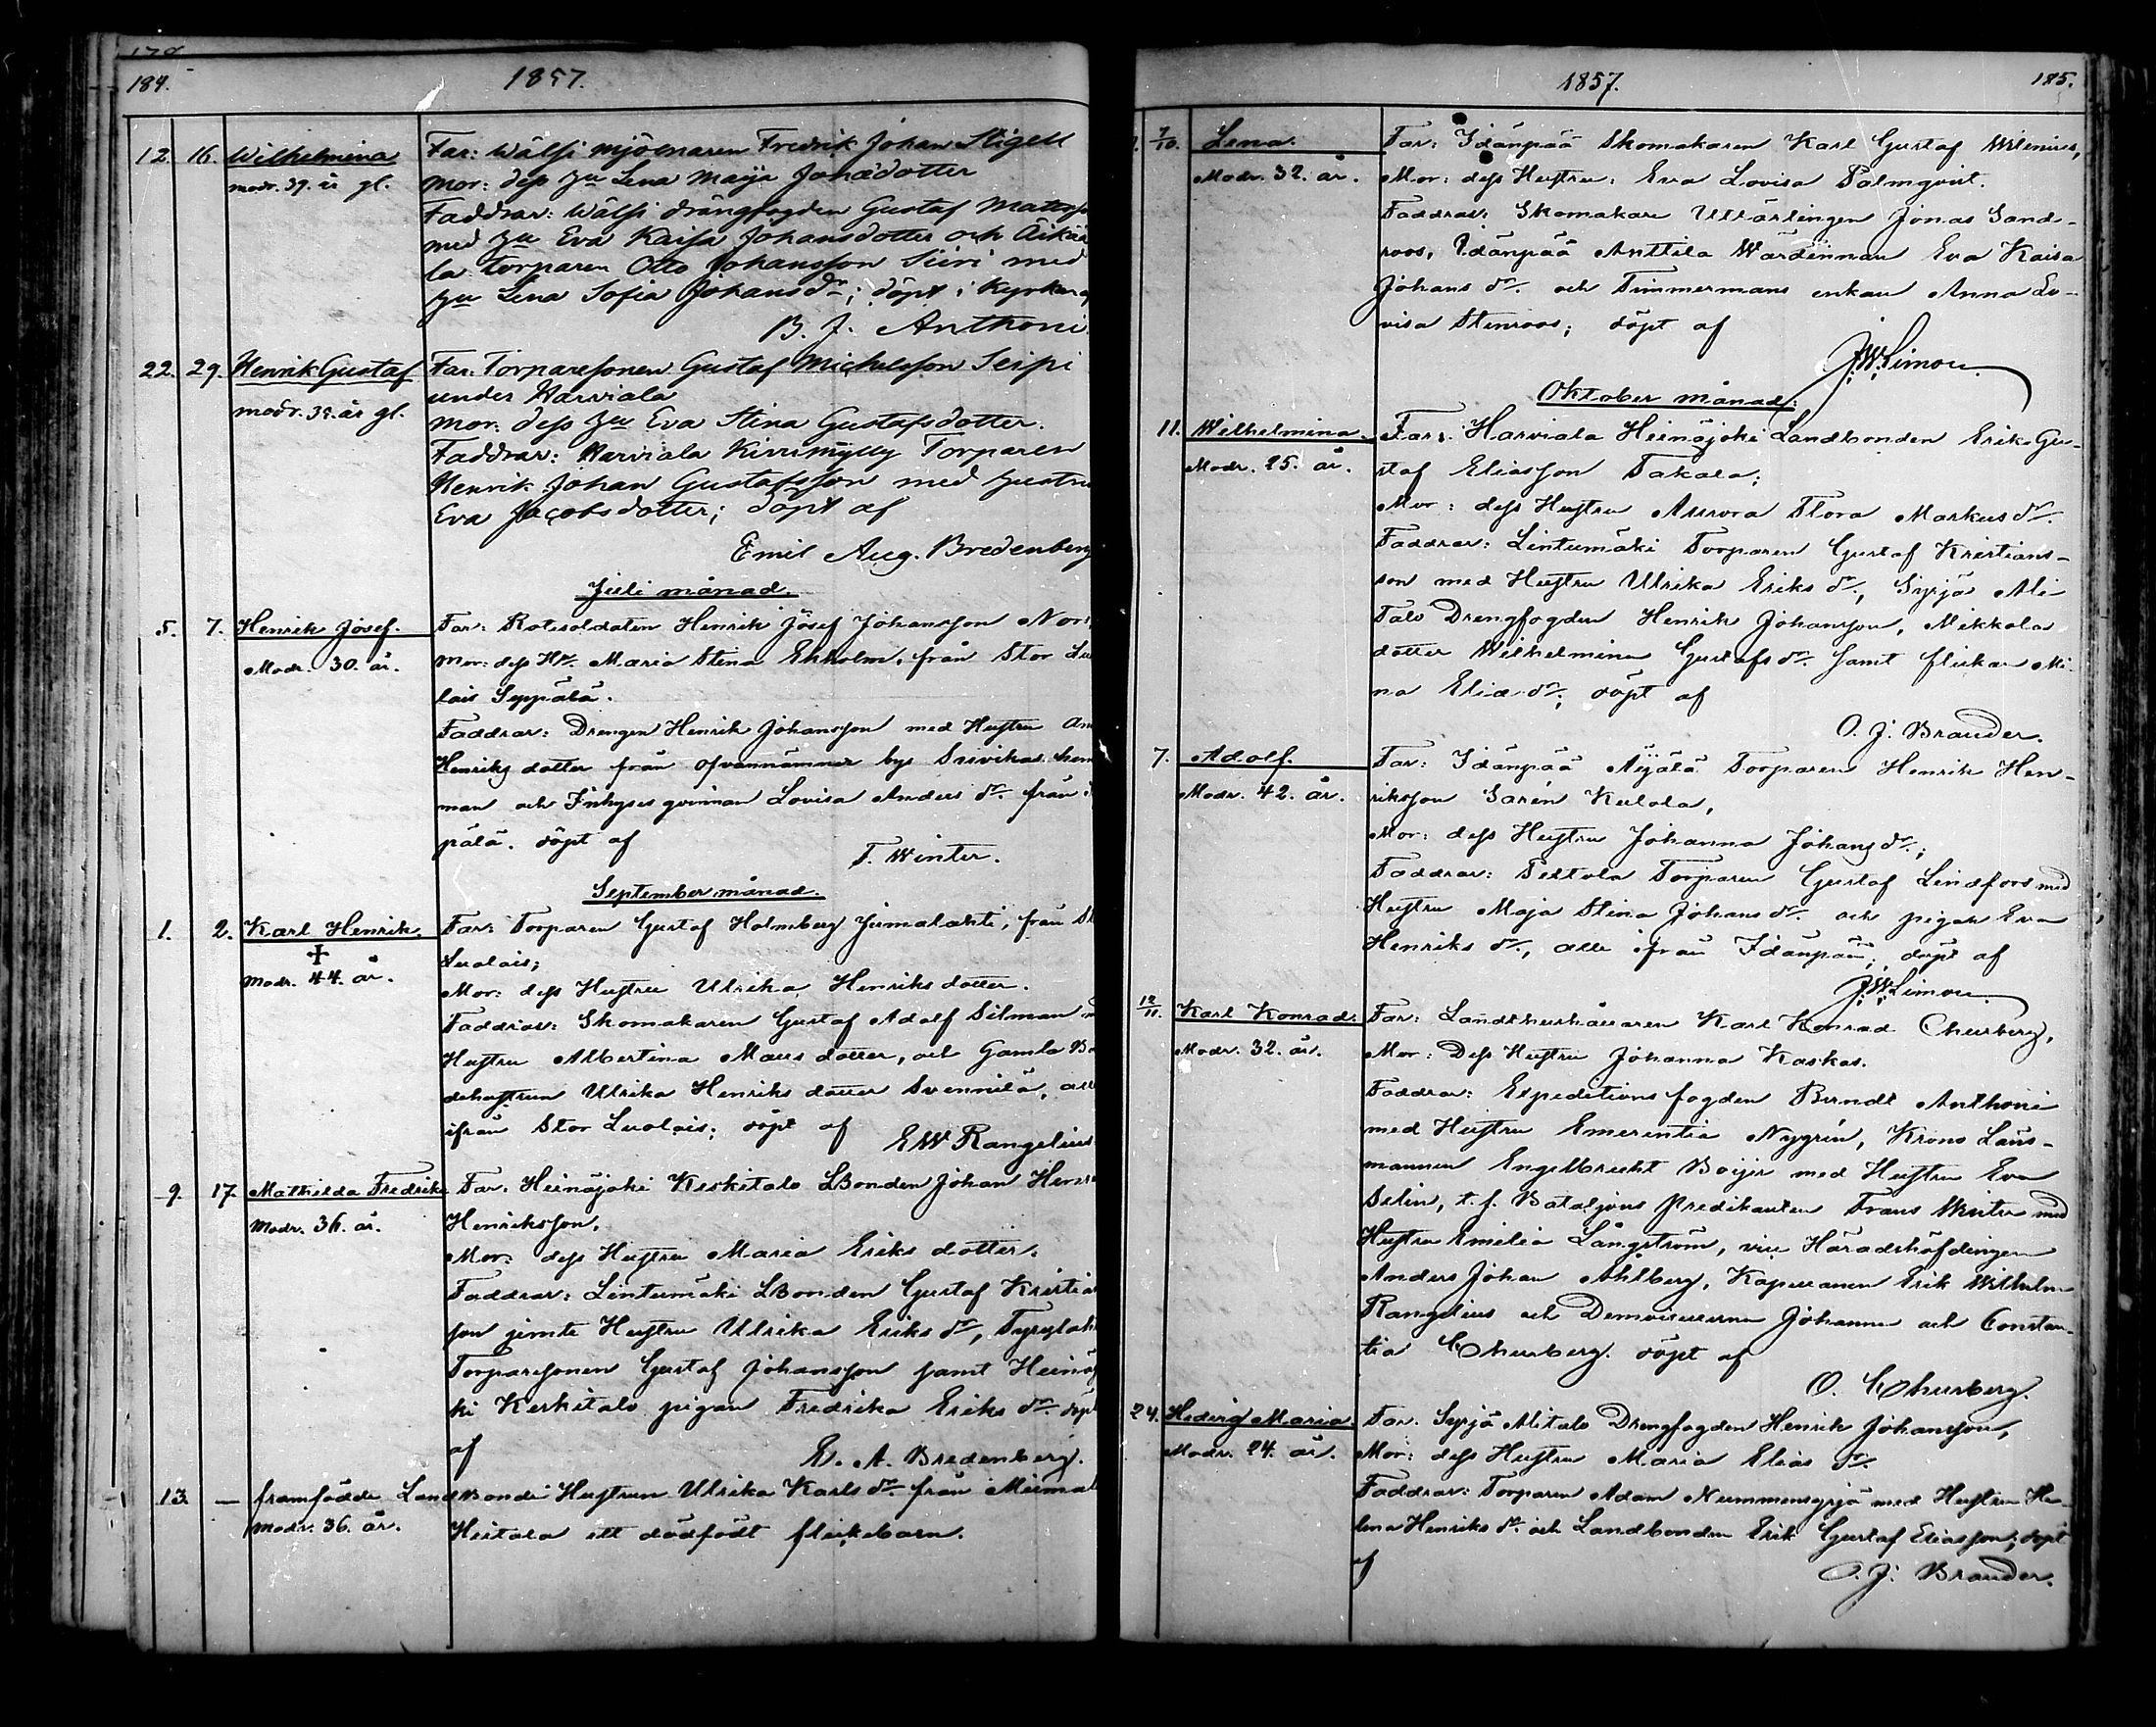 184.
1857.
12. 16. Wilhelmina Far: Wälsi mjölnaren Fredrik Johan Stigell
modr. 39. år gl. Mor: dess Hu Lena Maija Jonædotter
Faddrar: Wälsi drängfogden Gustaf Mattss
med Hu Eva Kaisa Johansdotter och Äikää
la torparen Otto Johansson Siiri med
Hu Lena Sofia Johansdr; döpt i kyrkan af
B. J. Anthoni
22. 29. Henrik Gustaf Far: Torparesonen Gustaf Michelsson Seipi
modr. 39. år gl. under Harviala
Mor: dess Hu Eva Stina Gustafsdotter.
Faddrar: Harviala Kirrimylly Torparen
Henrik Johan Gustafsson med hustru
Eva Jacobsdotter; döpt af
Emil Aug. Bredenberg
Juli månad.
5. 7. Henrik Josef. Far: Rotesoldaten Henrik Josef Johansson Nor
Modr. 30. år. Mor: dess Hu. Maria Stina Ekholm, från Stor Lu
lais Seppälä.
Faddrar: Drengen Henrik Johansson med Hustru An
Henriks dotter från ofvannämner bys hem
man och Inhyses qvinnan Lovisa Anders dr. från
pälä. döpt af F. Winter.
September månad.
1. 2. Karl Henrik. Far: Torparen Gustaf Holmberg Jumalahti, från St
+ Luolais;
Modr. 44. år. Mor: dess Hustru Ulrika Henriks dotter.
Faddrar: Skomakaren Gustaf Adolf Silman m
Hustru Albertina Matts dotter, och Gamla Bo
dehustrun Ulrika Henriks dotter Svennilä, alla
ifrån Stor Luolais; döpt af EW Rangelius
9. 17. Mathilda Fredrika Far: Heinäjoki Keskitalo LBonden Johan Henr
Modr. 36. år. Henriksson,
Mor: dess Hustru Maria Eriks dotter.
Faddrar: Lintumäki LBonden Gustaf Kristia
son jemte Hustru Ulrika Eriks dr,
Torparesonen Gustaf Johansson samt Heinäj
ki Keskitalo pigan Fredrika Eriks dr. döpt
af E. A. Bredenberg.
13. — framfödde Landbonde Hustrun Ulrika Karls dr. från Miemal
Modr. 36. år. Heitala ett dödfödt flickebarn.
1857. 185.
7/10. Lena. Far: Idänpää Skomakaren Karl Gustaf Wilenius,
Modr. 32. år. Mor: dess Hustru: Eva Lovisa Palmqvist.
Faddrar: Skomakare Utlärlingen Jonas Sand-
roos, Idänpää Anttila Wärdinnan Eva Kaisa
Johans dr. och Timmermans enkan Anna Lo-
visa Stenroos; döpt af
J.W. Limon.
Oktober månad:
11. Wilhelmina. Far: Harviala Heinäjoki Landbonden Erik Gu-
Modr. 25. år. staf Eliasson Takala;
Mor: dess Hustru Aurora Flora Markus dr.
Faddrar: Lintumäki Torparen Gustaf Kristians-
son med Hustru Ulrika Eriks dr., Syrjä Ali
Talo Drengfogden Henrik Johansson, Mikkola
dotter Wilhelmina Gustafs dr. samt flickan Mi
na Eliæ dr; döpt af
O. J. Brander.
7. Adolf. Far: Idänpää Äijälä Torparen Henrik Hen-
Modr. 42. år. riksson Sarén Kulola,
Mor: dess Hustru Johanna Johans dr.;
Faddrar: Peltola Torparen Gustaf Lindfors med
Hustru Maja Stina Johans dr. och pigan Eva
Henriks dr., alla ifrån Idänpää; döpt af
J.W. Limon.
12/11. Karl Konrad. Far: Landthushållaren Karl Konrad Churberg,
Modr. 32. år. Mor: Dess Hustru Johanna Kaskas.
Faddrar: Expeditions fogden Berndt Anthoni
med Hustru Emerentia Nygrén, Krono Läns-
mannen Engelbrecht Boijer med Hustru Eva
Selin, t. f. Bataljons Predikanten Frans Winter med
Hustru Emilia Långström, vice Häradshöfdingen
Anders Johan Ahlberg, Kapellanen Erik Wilhelm
Rangelius och Demoisellerna Johanna och Constan-
tia Churberg. döpt af
O. Churberg.
24. Hedvig Maria. Far: Syrjä Alitalo Drengfogden Henrik Johansson,
Modr. 24. år. Mor: dess Hustru Maria Elias dr.
Faddrar: Torparen Adam Nummensyrjä med Hustru He-
lena Henriks dr. och Landbonden Erik Gustaf Eliasson; döpt
af O. J. Brander.